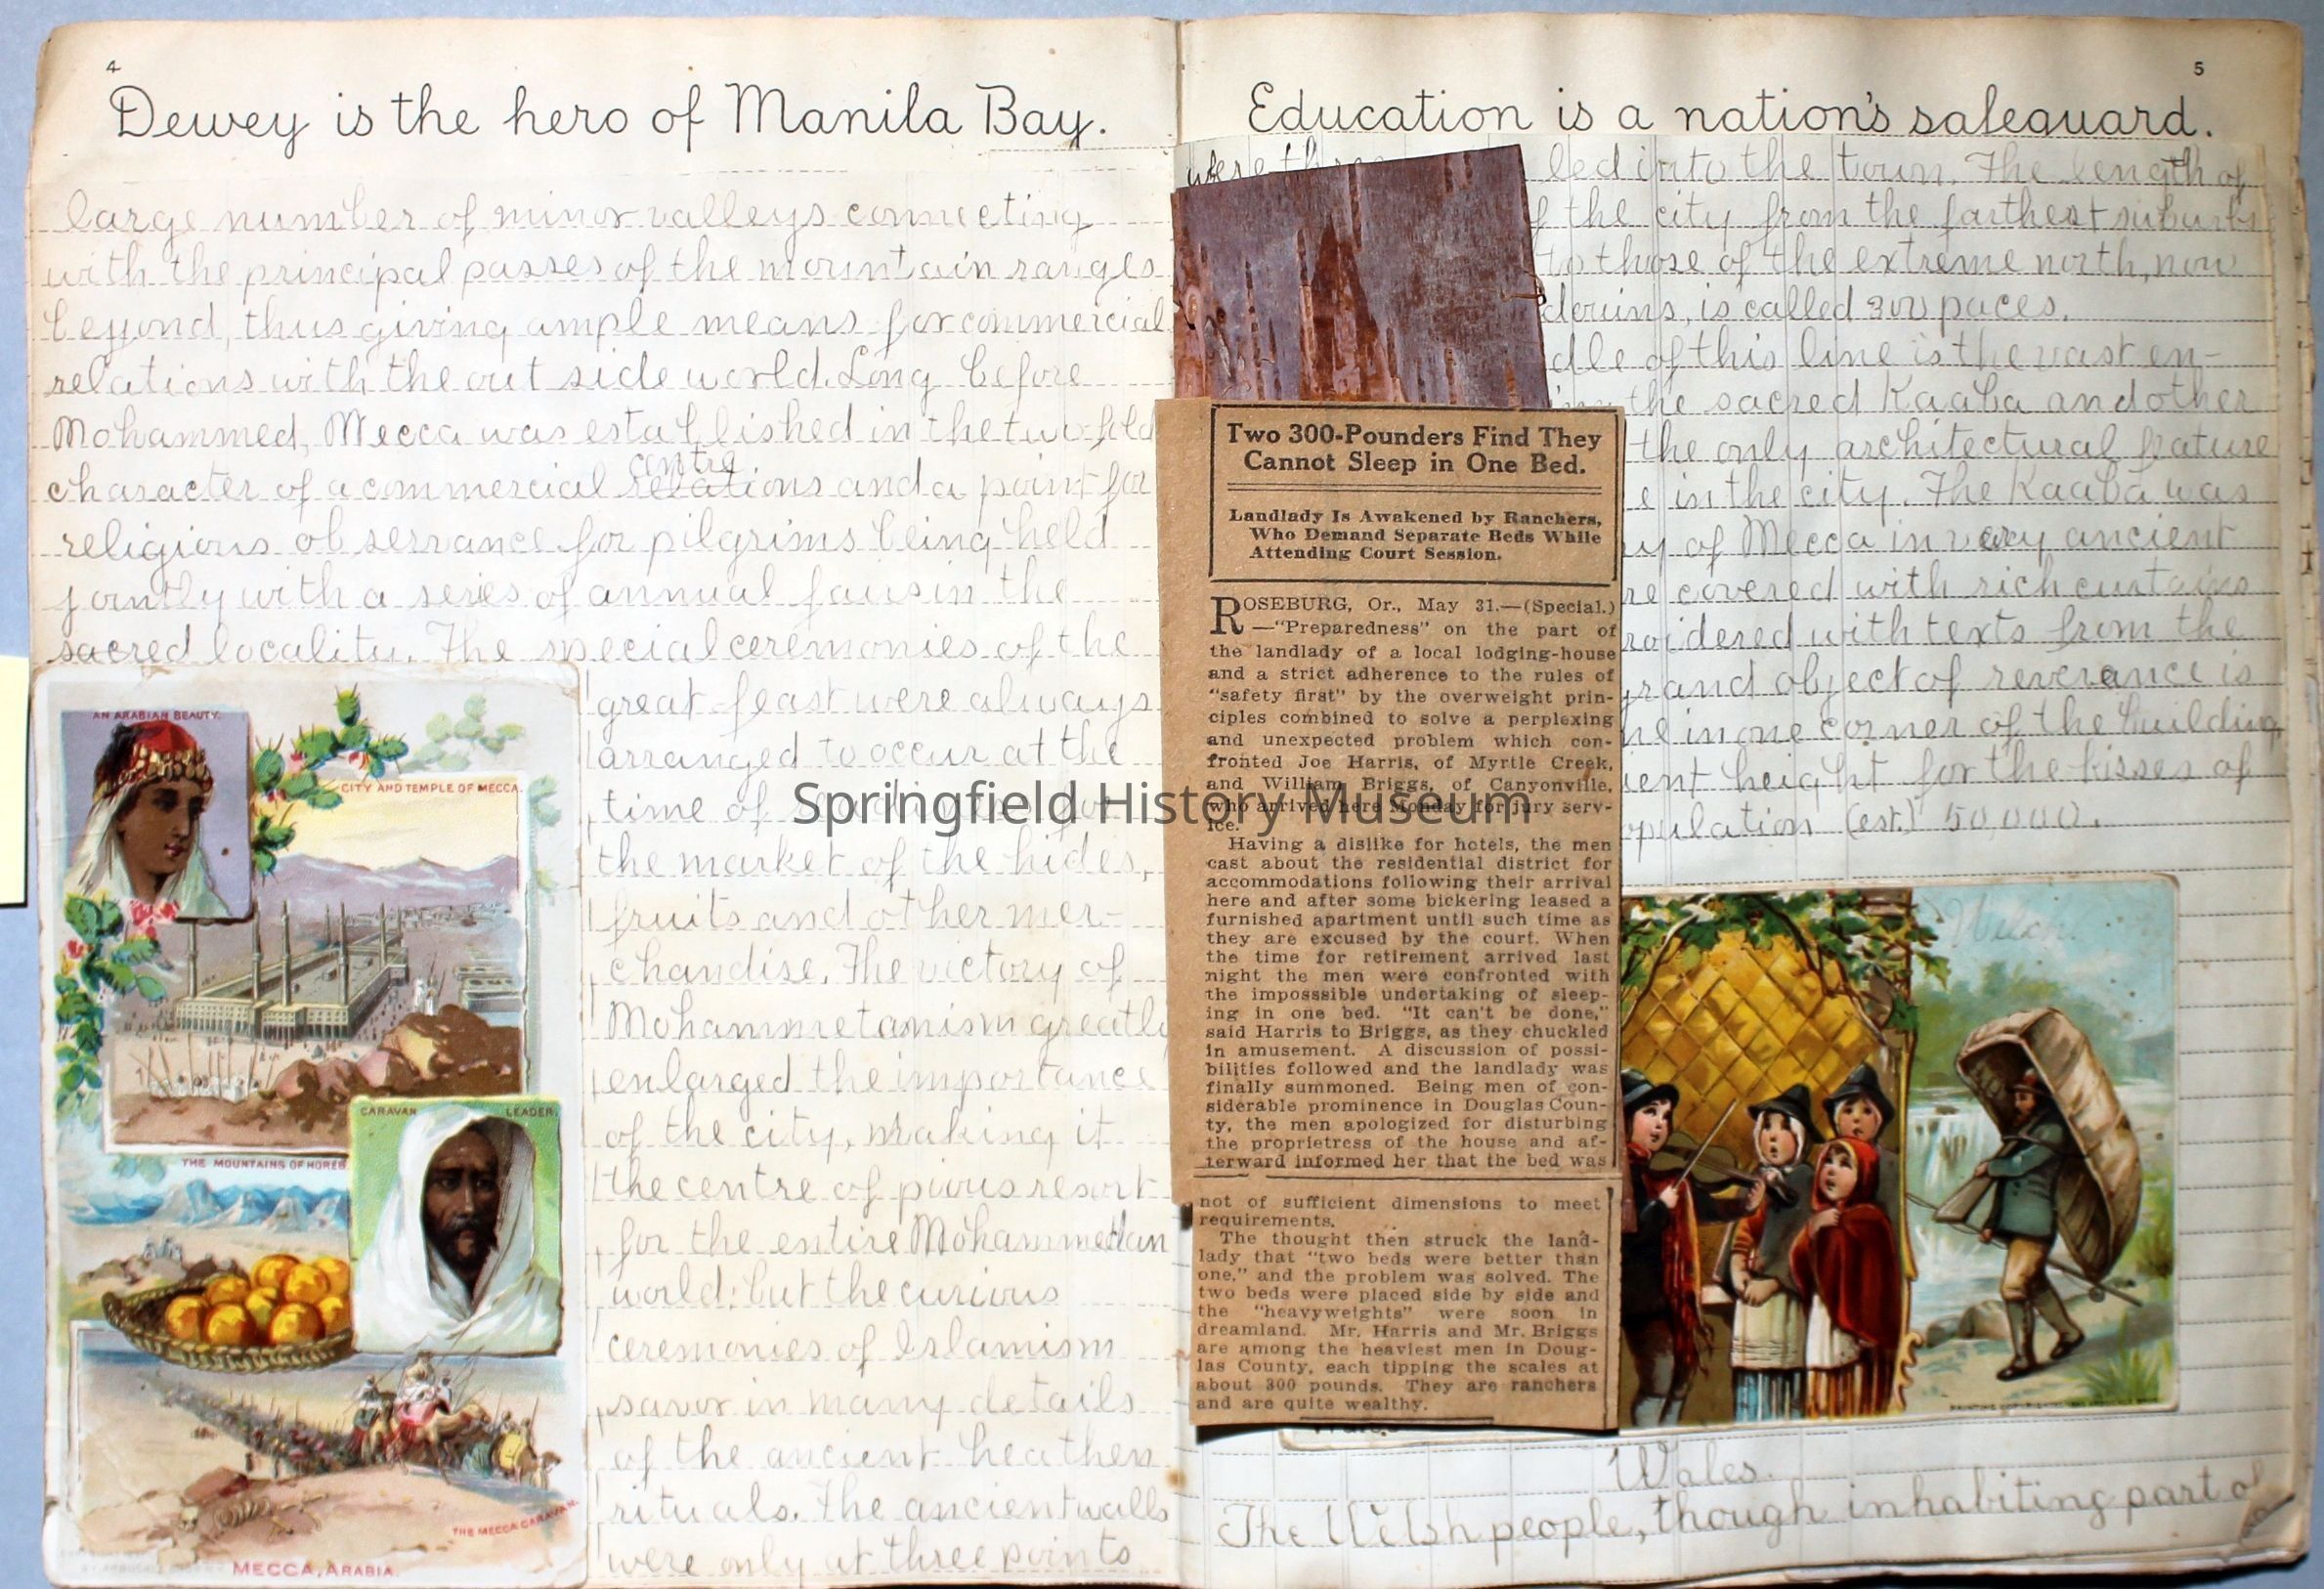 4
Dewey is the hero of Manila Bay.
large number of minor valleys connecting
with the principal passes of the mountain ranges
beyond, thus giving ample means for commercial
relations with the out side world. Long before
Mohammed, Mecca was established in the two fold
centre
character of a commercial relations and a point for
religious observance for pilgrims being held
jointly with a series of annual fairs in the
sacred locality. The special ceremonies of the
great feast were always
arranged to occur at the
time of
the market of the hides,
fruits and other mer-
chandise. The victory of
Mohammetanism greatly
enlarged the importance
of the city, making it
the centre of pious resort
for the entire Mohammedan
world; but the curious
ceremonies of Islamism
savor in many details
of the ancient heathen
rituals. The ancient walls
were only at three points
AN ARABIAN BEAUTY.
CITY AND TEMPLE OF MECCA.
CARAVAN LEADER.
THE MOUNTAINS OF HOREB
THE MECCA CARAVAN.
MECCA, ARABIA
5
Education is a nation's safeguard.
led into the town. The length of
the city from the farthest suburbs
to those of the extreme north, now
is called 300 paces.
of this line is the vast en-
the sacred Kaaba and other
the only architectural feature
in the city. The Kaaba was
of Mecca in very ancient
covered with rich curtains
with texts from the
object of reverance is
in one corner of the building
height for the kisses of
(est.) 50,000.
Two 300-Pounders Find They
Cannot Sleep in One Bed.
Landlady Is Awakened by Ranchers,
Who Demand Separate Beds While
Attending Court Session.
ROSEBURG, Or., May 31.—(Special.)
—"Preparedness" on the part of
the landlady of a local lodging-house
and a strict adherence to the rules of
"safety first" by the overweight prin-
ciples combined to solve a perplexing
and unexpected problem which con-
fronted Joe Harris, of Myrtle Creek,
and William Briggs, of Canyonville,
who arrived here Monday for jury serv-
ice.
Having a dislike for hotels, the men
cast about the residential district for
accommodations following their arrival
here and after some bickering leased a
furnished apartment until such time as
they are excused by the court. When
the time for retirement arrived last
night the men were confronted with
the imposssible undertaking of sleep-
ing in one bed. "It can't be done,"
said Harris to Briggs, as they chuckled
in amusement. A discussion of possi-
bilities followed and the landlady was
finally summoned. Being men of con-
siderable prominence in Douglas Coun-
ty, the men apologized for disturbing
the proprietress of the house and af-
terward informed her that the bed was
not of sufficient dimensions to meet
requirements.
The thought then struck the land-
lady that "two beds were better than
one," and the problem was solved. The
two beds were placed side by side and
the "heavyweights" were soon in
dreamland. Mr. Harris and Mr. Briggs
are among the heaviest men in Doug-
las County, each tipping the scales at
about 300 pounds. They are ranchers
and are quite wealthy.
Welch.
Wales.
The Welsh people, though inhabiting part of
Springfield History Museum